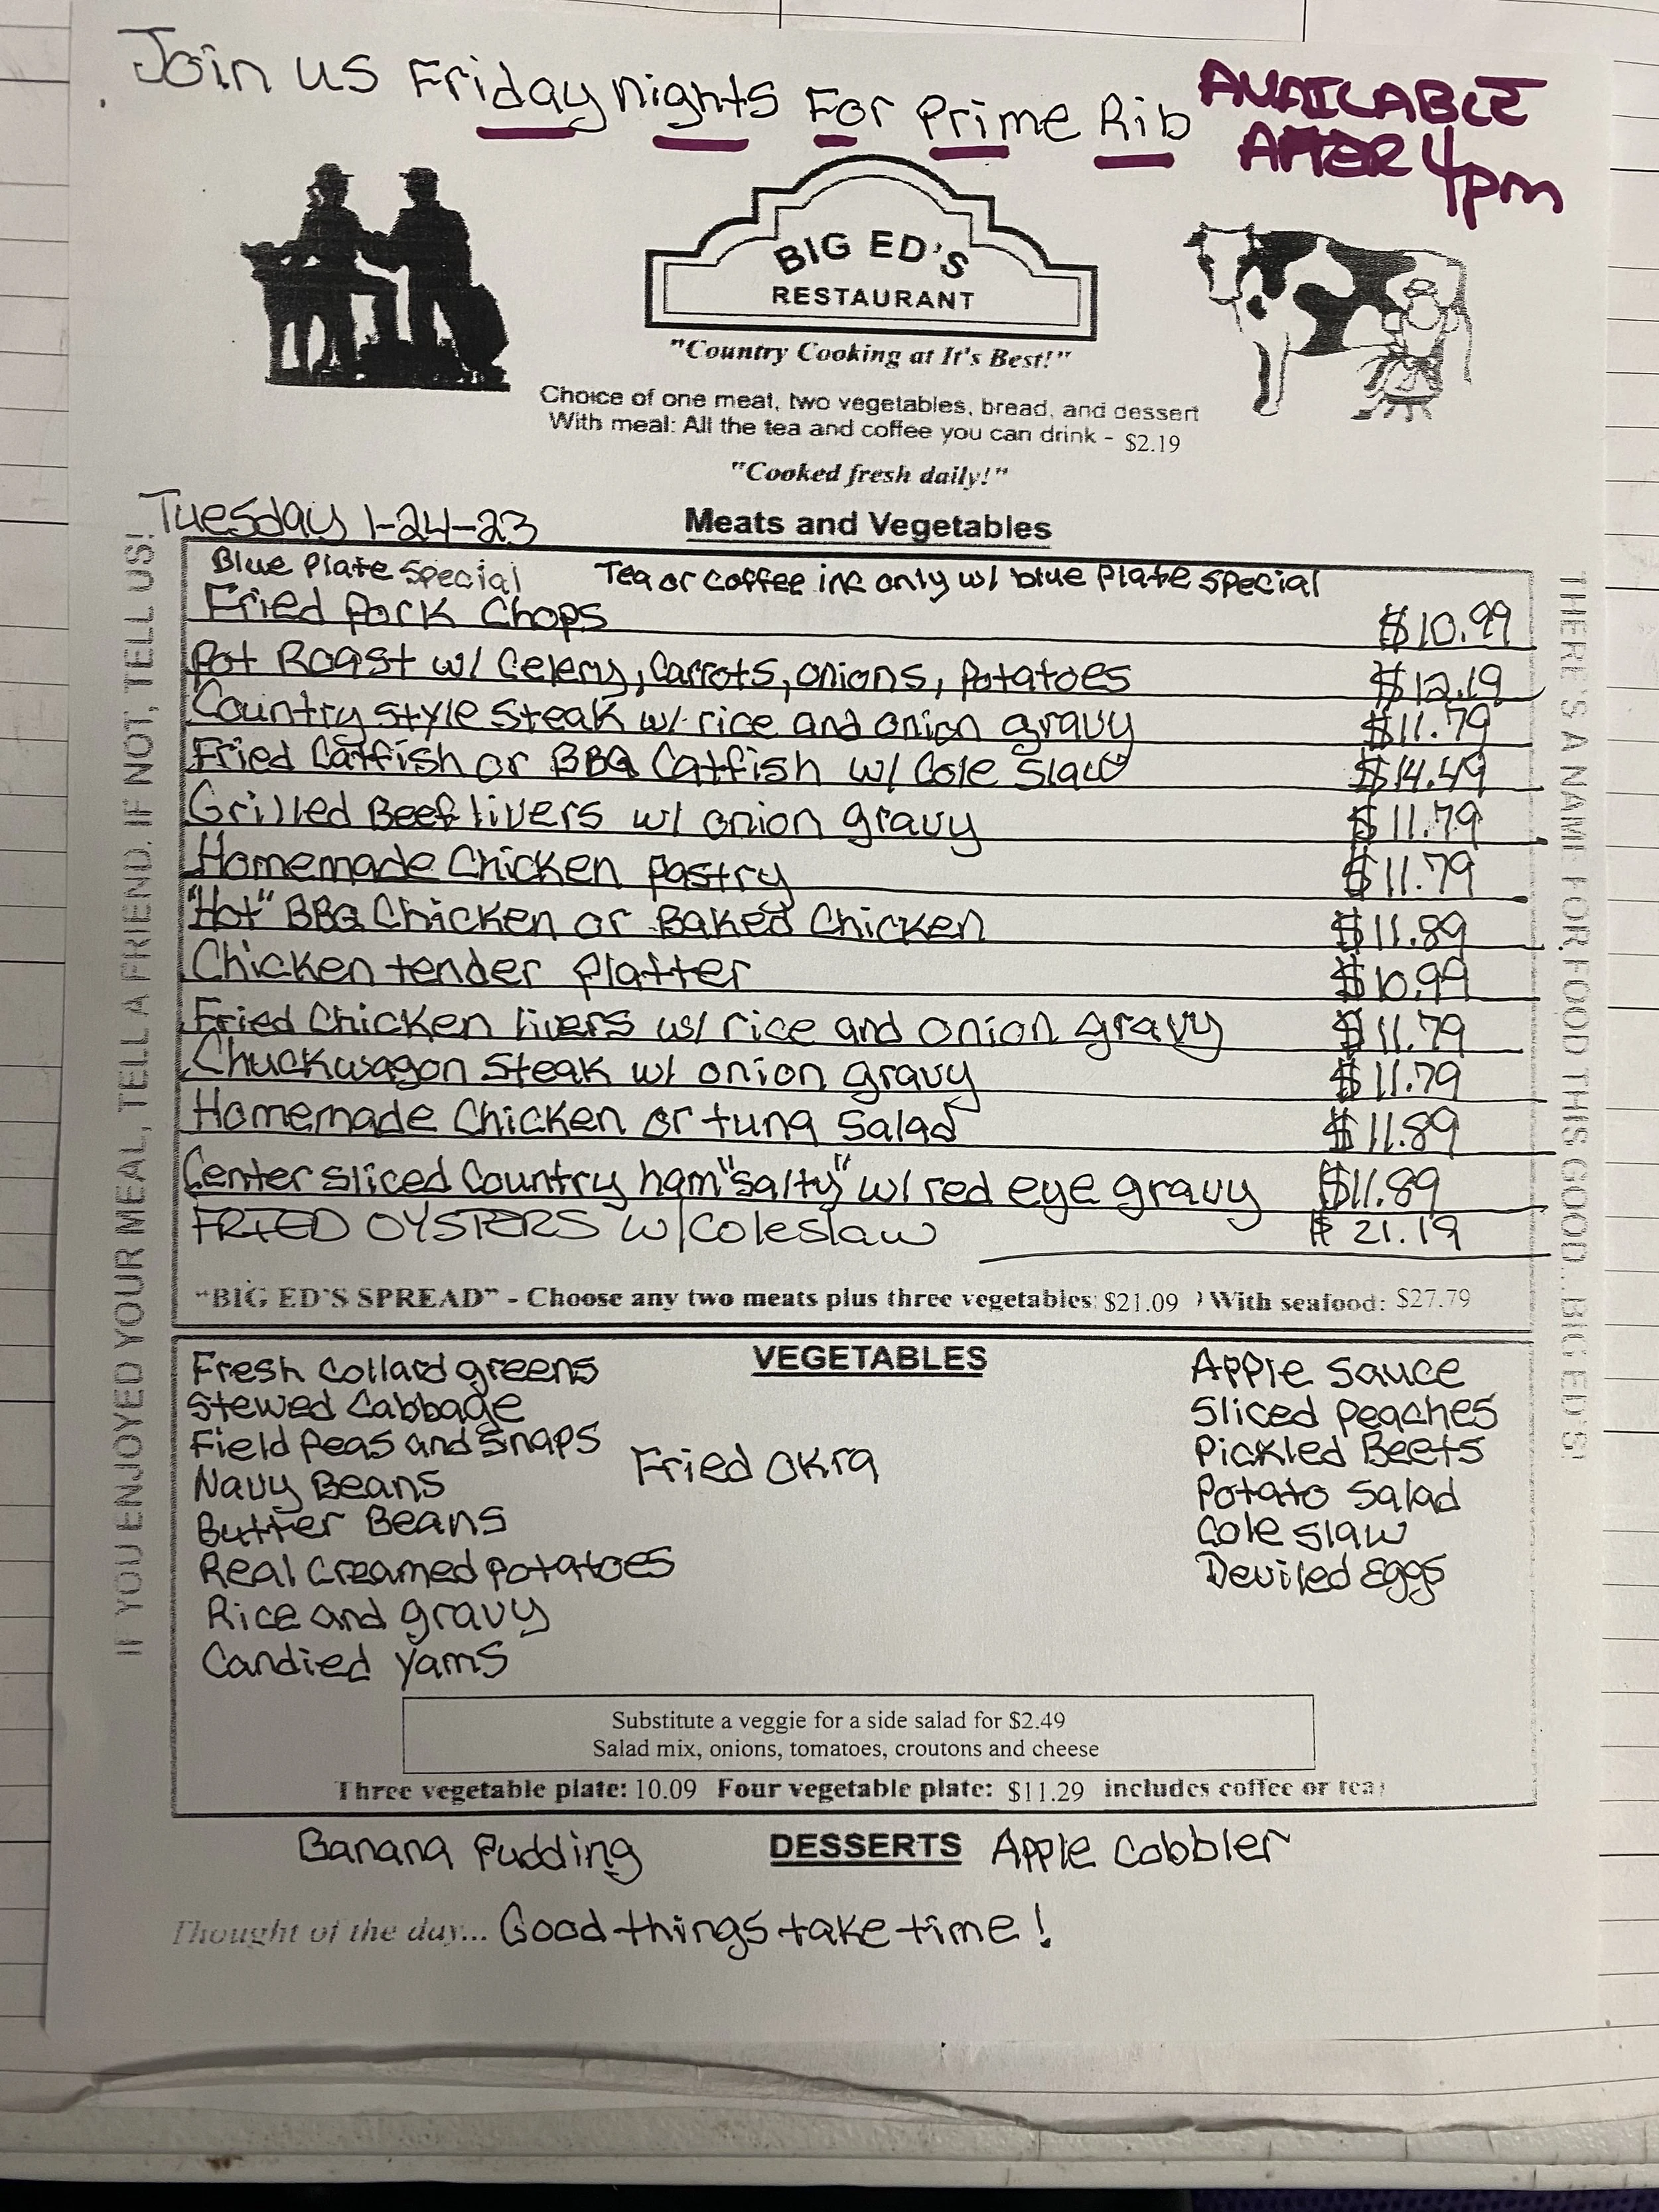 Join us Friday nights For Prime Rib
AVAILABLE
AFTER 4pm
BIG ED'S
RESTAURANT
"Country Cooking at It's Best!"
Choice of one meat, two vegetables, bread, and dessert
With meal: All the tea and coffee you can drink - $2.19
"Cooked fresh daily!"
Tuesday 1-24-23
Meats and Vegetables
IF YOU ENJOYED YOUR MEAL, TELL A FRIEND. IF NOT, TELL US!
Blue Plate Special Tea or Coffee inc only w/ blue Plate Special
Fried Pork Chops $10.99
Pot Roast w/ Celery, Carrots, onions, Potatoes $12.19
Country style steak w/ rice and onion gravy $11.79
Fried Catfish or BBQ Catfish w/ Cole slaw $14.49
Grilled Beef livers w/ onion gravy $11.79
Homemade Chicken Pastry $11.79
"Hot" BBQ Chicken or Baked Chicken $11.89
Chicken tender Platter $10.99
Fried Chicken livers w/ rice and onion gravy $11.79
Chuckwagon Steak w/ onion gravy $11.79
Homemade Chicken or tuna Salad $11.89
Center sliced Country ham "salty" w/ red eye gravy $11.89
FRIED OYSTERS w/Coleslaw $21.19
"BIG ED'S SPREAD" - Choose any two meats plus three vegetables: $21.09 ) With seafood: $27.79
THERE'S A NAME FOR FOOD THIS GOOD...BIG ED'S!
VEGETABLES
Fresh Collard greens
Stewed Cabbage
Field Peas and Snaps
Navy Beans
Butter Beans
Real Creamed Potatoes
Rice and gravy
Candied Yams
Fried Okra
Apple Sauce
Sliced Peaches
Pickled Beets
Potato Salad
Cole slaw
Deviled Eggs
Substitute a veggie for a side salad for $2.49
Salad mix, onions, tomatoes, croutons and cheese
Three vegetable plate: 10.09 Four vegetable plate: $11.29 includes coffee or tea)
DESSERTS
Banana Pudding
Apple Cobbler
Thought of the day... Good things take time!